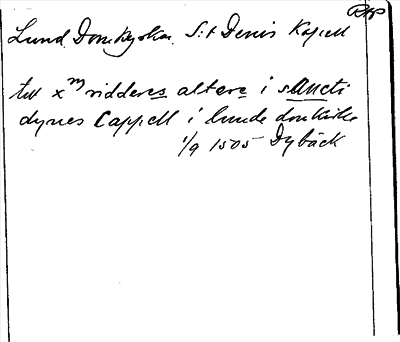 Lund, Domkyrka. S:t Denis Kapell
til x^m ridderes altere i sancti
dynes Cappell i lunde domkirke
1/9 1505 Dybäck